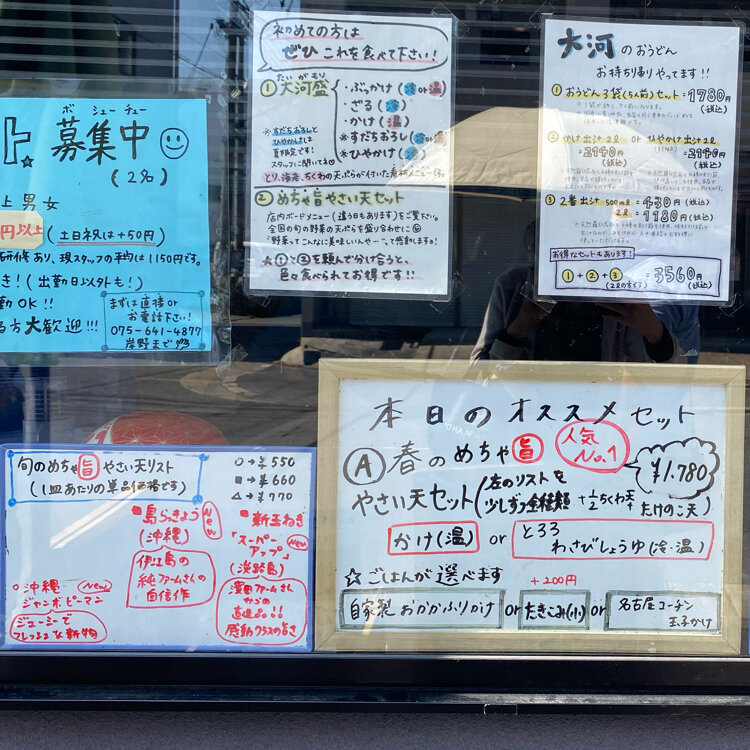 ボ シューチュー
ト. 募集中
(2名)
上 男女
円以上 (土日祝は+50円)
研修あり、現スタッフの平均は1150円です。
き!(出勤日以外も!)
勤OK!!
る方大歓迎!!!
まずは直接or
お電話下さい!
075-641-4877
岸野まで
初めての方は
ぜひ これを食べて下さい!
① 大河盛
たいがもり
・ぶっかけ(冷or温)
・ざる(冷)
・かけ(温)
*すだちおろし(冷or温)
*ひやかけ(冷)
*すだちおろしと
ひやかけは
夏限定です!
スタッフに聞いてね
とり、海老、ちくわの天ぷらが付いた看板メニューです。
② めちゃ旨やさい天セット
店内ボードメニュー(違う日もあります)をご覧下さい。
全国の旬の野菜の天ぷらを盛り合わせに
"野菜ってこんなに美味しいんやー"、って感動しますョ!
☆①と②を頼んで分け合うと、
色々食べられてお得です!!
大河のおうどん
お持ち帰りやってます!!
① おうどん3袋(5人前)セット=1780円
(税込)
② かけ出汁2ℓ or ひやかけ出汁2ℓ
=2140円
(税込)
=2140円
(税込)
③ 2番出汁 500ml=430円(税込)
2ℓ=1180円(税込)
お得なセットもあります!
①+②+③=3560円
(2ℓの方です)
(税込)
旬のめちゃ旨やさい天リスト
(1皿あたりの単品価格です)
○→¥550
■→¥660
△→¥770
■島らっきょう
(沖縄)
New
伊江島の
純ファームさんの
自信作
■新玉ねぎ
"スーパー
アップ"
New
(淡路島)
濱田ファームさん
からの
直送品!!
感動クラスの旨さ
○沖縄 New
ジャンボピーマン
ジューシーで
フレッシュな新物
本日のオススメセット
Ⓐ 春のめちゃ旨
人気
No.1
やさい天セット(左のリストを
少しずつ全種類 +½ちくわ天+
たけのこ天)
¥1.780
かけ(温) or とろろ
わさびじょうゆ(冷・温)
☆ごはんが選べます
+200円
自家製 おかかふりかけ or たきこみ(小) or 名古屋コーチン
玉子かけ